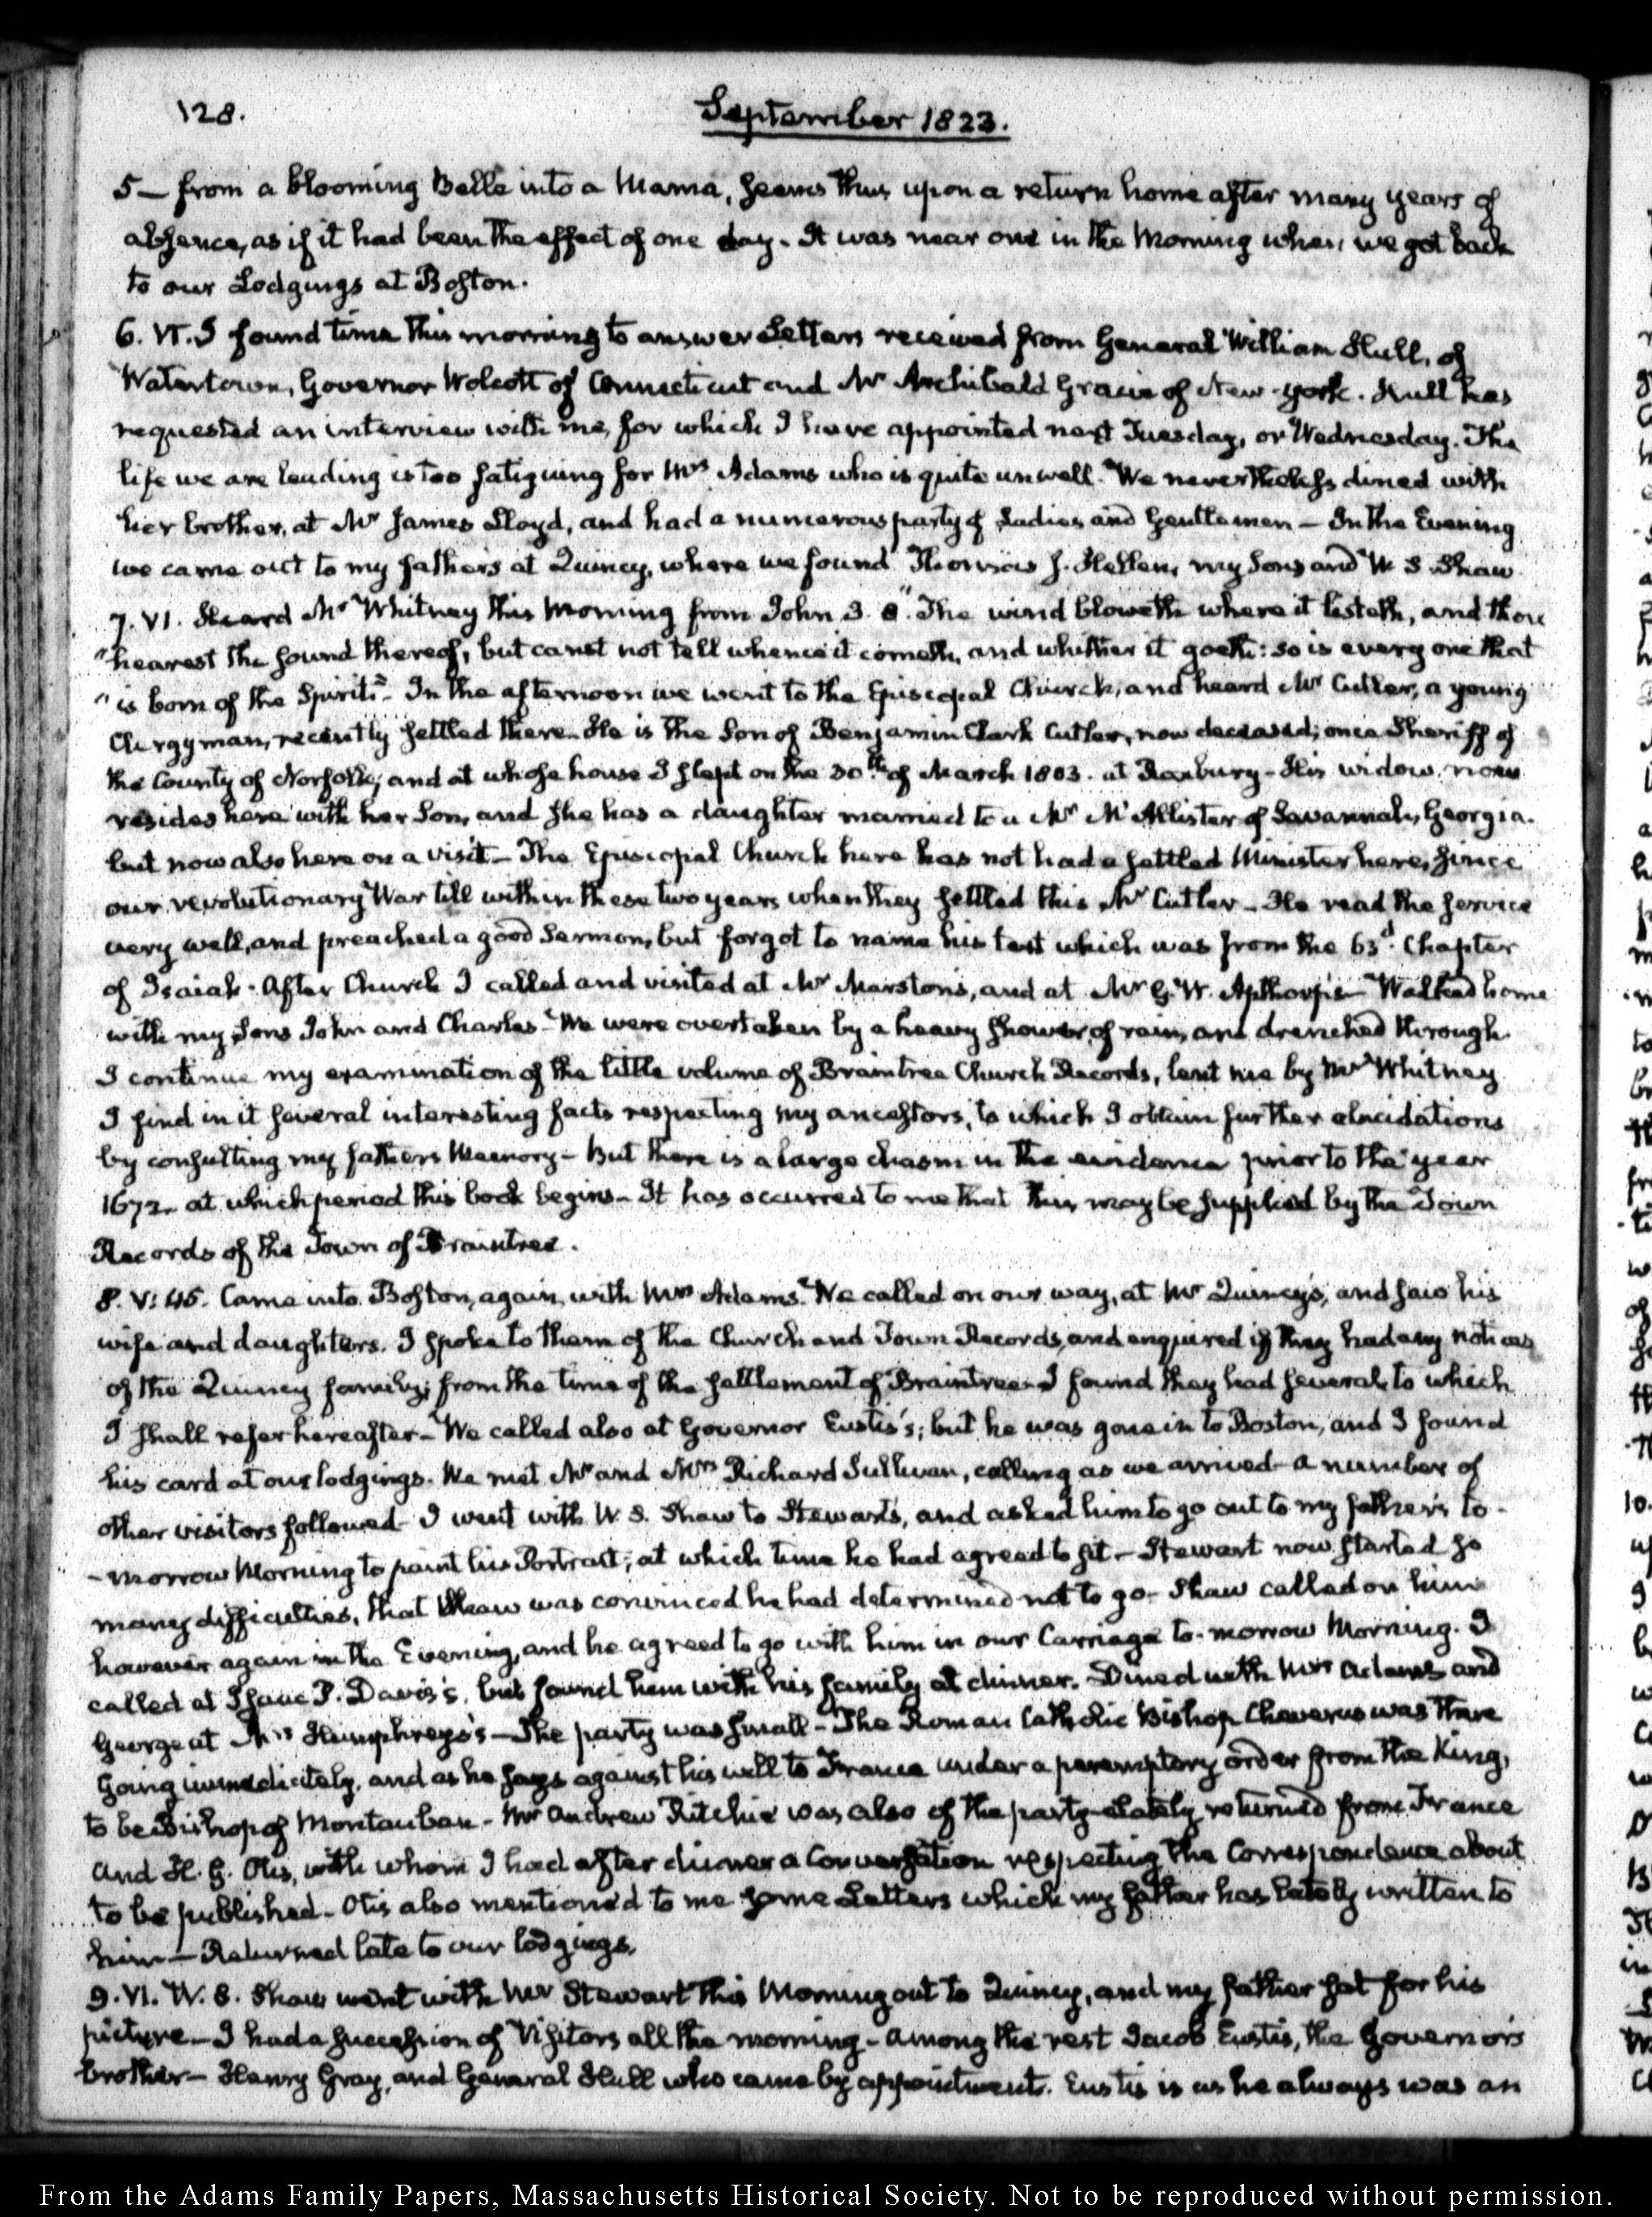 128.
September 1823.
5 — from a blooming Belle into a Mama, seems thus upon a return home after many years of
absence, as if it had been the effect of one day. It was near one in the Morning when we got back
to our Lodgings at Boston.
6. VI. I found time this morning to answer Letters received from General William Hull, of
Watertown, Governor Wolcott of Connecticut and Mr Archibald Gracie of New-York. Hull has
requested an interview with me, for which I have appointed next Tuesday, or Wednesday. The
life we are leading is too fatiguing for Mrs Adams who is quite unwell. We nevertheless dined with
her brother, at Mr James Lloyd, and had a numerous party of Ladies and Gentlemen — In the Evening
we came out to my father's at Quincy, where we found Thomas J. Hellen, my Sons and W. S. Shaw.
7. VI. Heard Mr Whitney this Morning from John 3. 8. "The wind bloweth where it listeth, and thou
"hearest the sound thereof, but canst not tell whence it cometh, and whither it goeth: so is every one that
"is born of the Spirit." In the afternoon we went to the Episcopal Church, and heard Mr Cutler, a young
Clergyman, recently settled there. He is the Son of Benjamin Clark Cutler, now deceased; once Sheriff of
the County of Norfolk; and at whose house I slept on the 30th of March 1803. at Roxbury — His widow, now
resides here with her Son, and she has a daughter married to a Mr McAllister of Savannah, Georgia.
but now also here on a visit — The Episcopal Church here has not had a settled Minister here, since
our revolutionary War till within these two years when they settled this Mr Cutler — He read the service
very well, and preached a good Sermon, but forgot to name his text which was from the 63d. Chapter
of Isaiah. After Church I called and visited at Mr Marston's, and at Mr G. W. Apthorp's — Walked home
with my Sons John and Charles — We were overtaken by a heavy shower of rain, and drenched through.
I continue my examination of the little volume of Braintree Church Records, lent me by Mr Whitney
I find in it several interesting facts respecting my ancestors, to which I obtain further elucidations
by consulting my father's Memory — But there is a large chasm in the evidence prior to the year
1672. at which period this book begins — It has occurred to me that this may be supplied by the Town
Records of the Town of Braintree.
8. V: 45. Came into Boston, again, with Mrs Adams. We called on our way, at Mr Quincy's, and saw his
wife and daughters. I spoke to them of the Church and Town Records, and enquired if they had any notices
of the Quincy family, from the time of the settlement of Braintree — I found they had several, to which
I shall refer hereafter — We called also at Governor Eustis's; but he was gone in to Boston, and I found
his card at our lodgings. We met Mr and Mrs Richard Sullivan, calling as we arrived — a number of
other visitors followed — I went with W. S. Shaw to Stewart's, and asked him to go out to my father's to-
-morrow Morning to paint his Portrait; at which time he had agreed to sit — Stewart now started so
many difficulties, that Shaw was convinced he had determined not to go — Shaw called on him
however again in the Evening, and he agreed to go with him in our Carriage to-morrow Morning. I
called at Isaac P. Davis's, but found him with his family at dinner. Dined with Mrs Adams and
George at Mrs Humphreys's — The party was small — The Roman Catholic Bishop Cheverus was there
going immediately, and as he says against his will to France under a peremptory order from the King,
to be Bishop of Montauban — Mr Andrew Ritchie was also of the party — lately returned from France
and H. G. Otis, with whom I had after dinner a Conversation respecting the Correspondence about
to be published — Otis also mentioned to me some Letters which my father has lately written to
him — Returned late to our lodgings.
9. VI. W. S. Shaw went with Mr Stewart this Morning out to Quincy, and my father sat for his
picture — I had a succession of Visitors all the morning — among the rest Jacob Eustis, the Governor's
brother — Henry Gray, and General Hull who came by appointment. Eustis is as he always was an
From the Adams Family Papers, Massachusetts Historical Society. Not to be reproduced without permission.